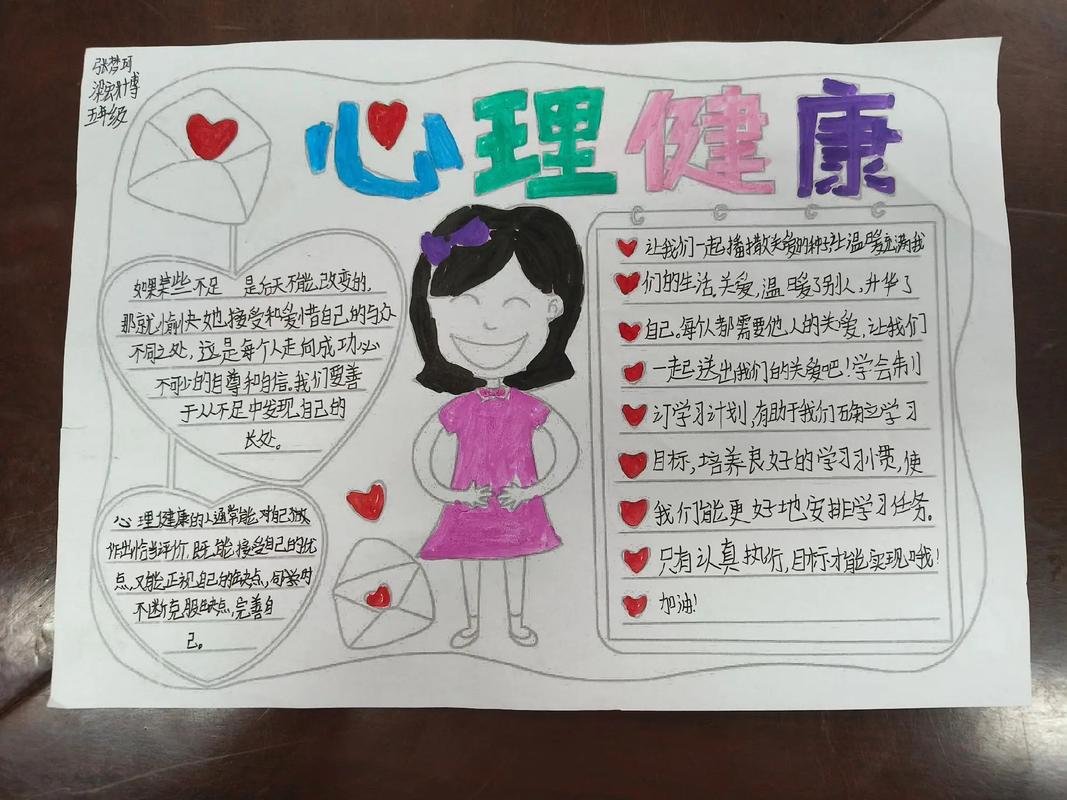 张梦珂
梁宏博
五年级
心理健康
如果某些不足 是后天不能改变的,
那就愉快地接受和爱惜自己的与众
不同之处, 这是每个人走向成功必
不可少的自尊和自信。我们要善
于从不足中发现自己的
长处。
心理健康的人通常能对自己做
作出恰当评价, 既能接受自己的优
点,又能正视自己的缺点, 同时
不断克服缺点,完善自
己。
让我们一起播撒关爱的种子,让温暖充满我
们的生活。关爱,温暖了别人,升华了
自己。每个人都需要他人的关爱, 让我们
一起送出我们的关爱吧!学会制
订学习计划,有助于我们确立学习
目标, 培养良好的学习习惯, 使
我们能更好地安排学习任务。
只有认真执行,目标才能实现哦!
加油!